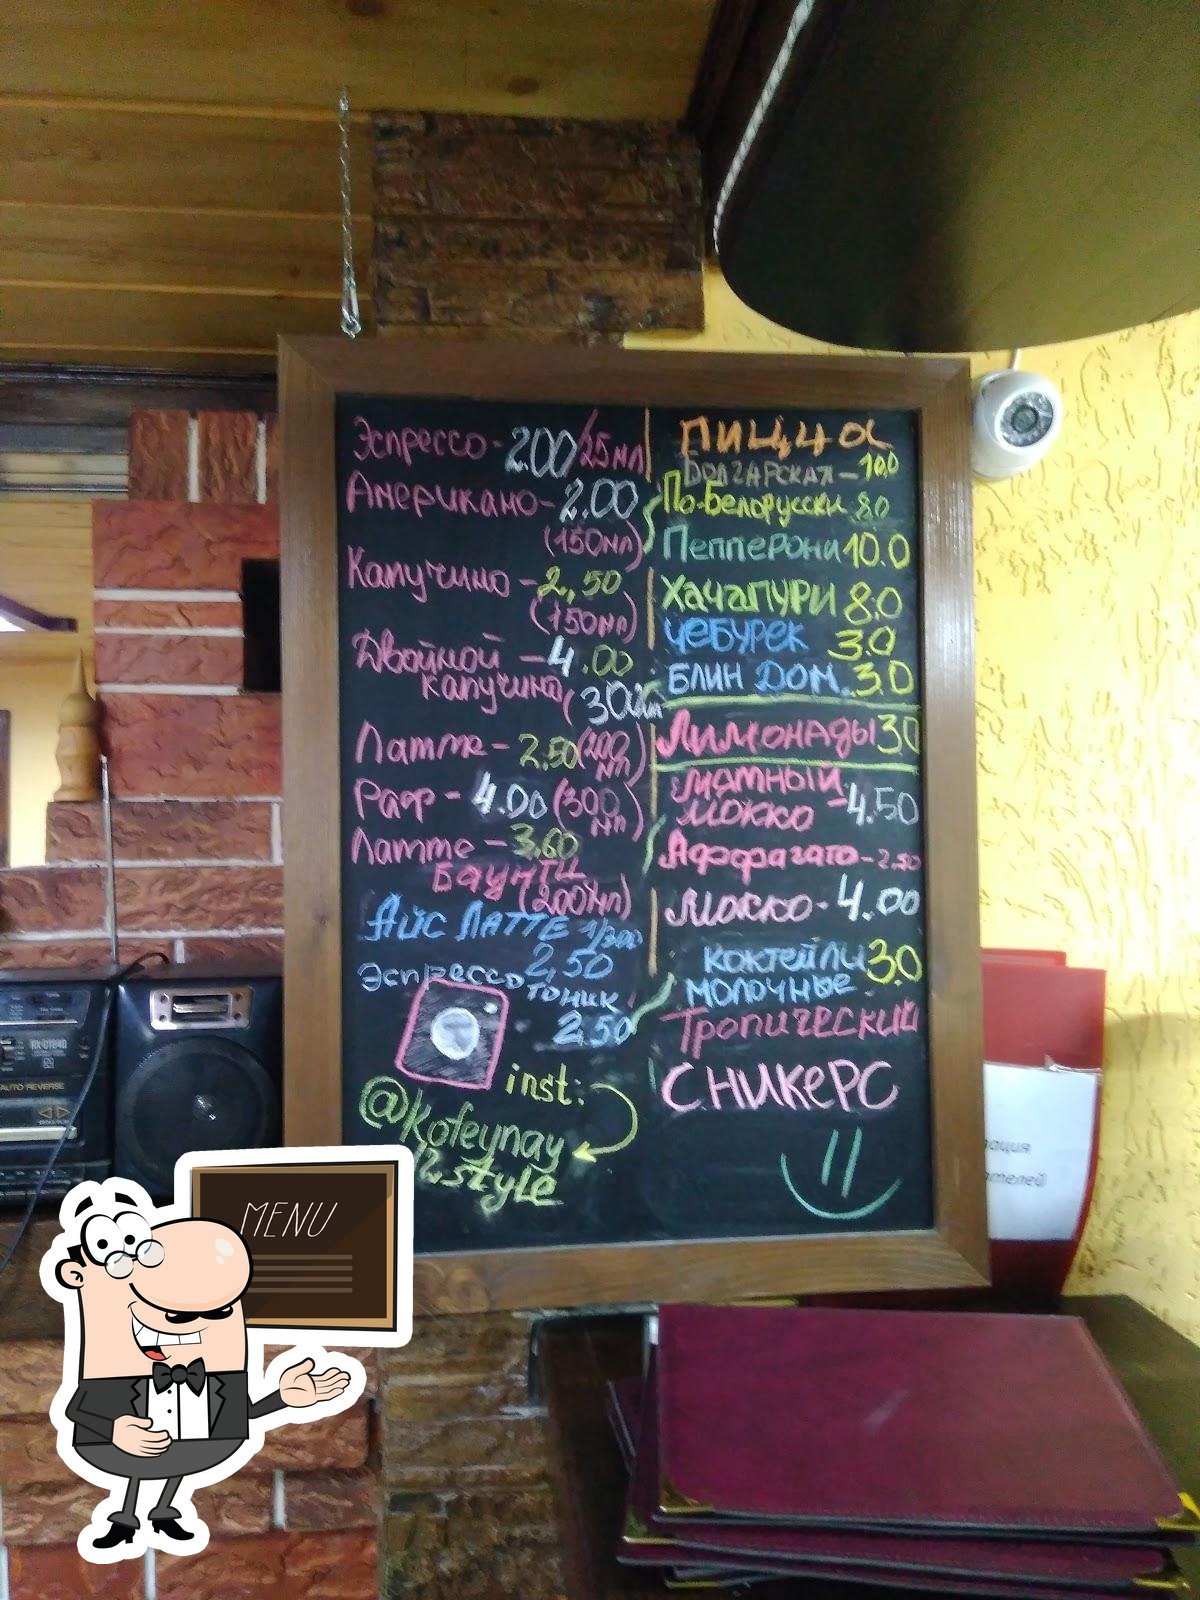 Эспрессо - 2.00/25мл
Американо - 2.00
(150мл)
Капучино - 2,50
(150мл)
Двойной - 4.00
капучино (300мл
Латте - 2.50 (200
мл)
Раф - 4.00 (300
мл)
Латте - 3.60
Баунти
(200мл)
Айс Латте 1/300
2,50
Эспрессо
тоник
- 2.50
inst:
@Kofeynay
style
ПИЦЦА
Болгарская - 10.0
По-Белорусски 8.0
Пепперони 10.0
Хачапури 8.0
Чебурек 3.0
Блин Дом. 3.0
Лимонады 3.0
Мятный
мокко - 4.50
Аффагато - 2.50
Мокко - 4.00
коктейли 3.0
молочные
Тропический
СНИКЕРС
MENU
AUTO REVERSE
ация
ателей